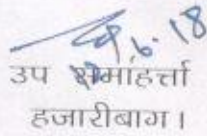 9.6.18
उप समाहर्त्ता
हजारीबाग।